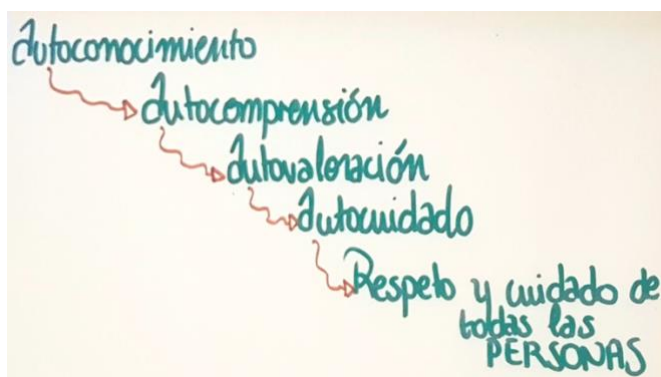 Autoconocimiento
Autocomprensión
Autovaloración
Autocuidado
Respeto y cuidado de
todas las
PERSONAS